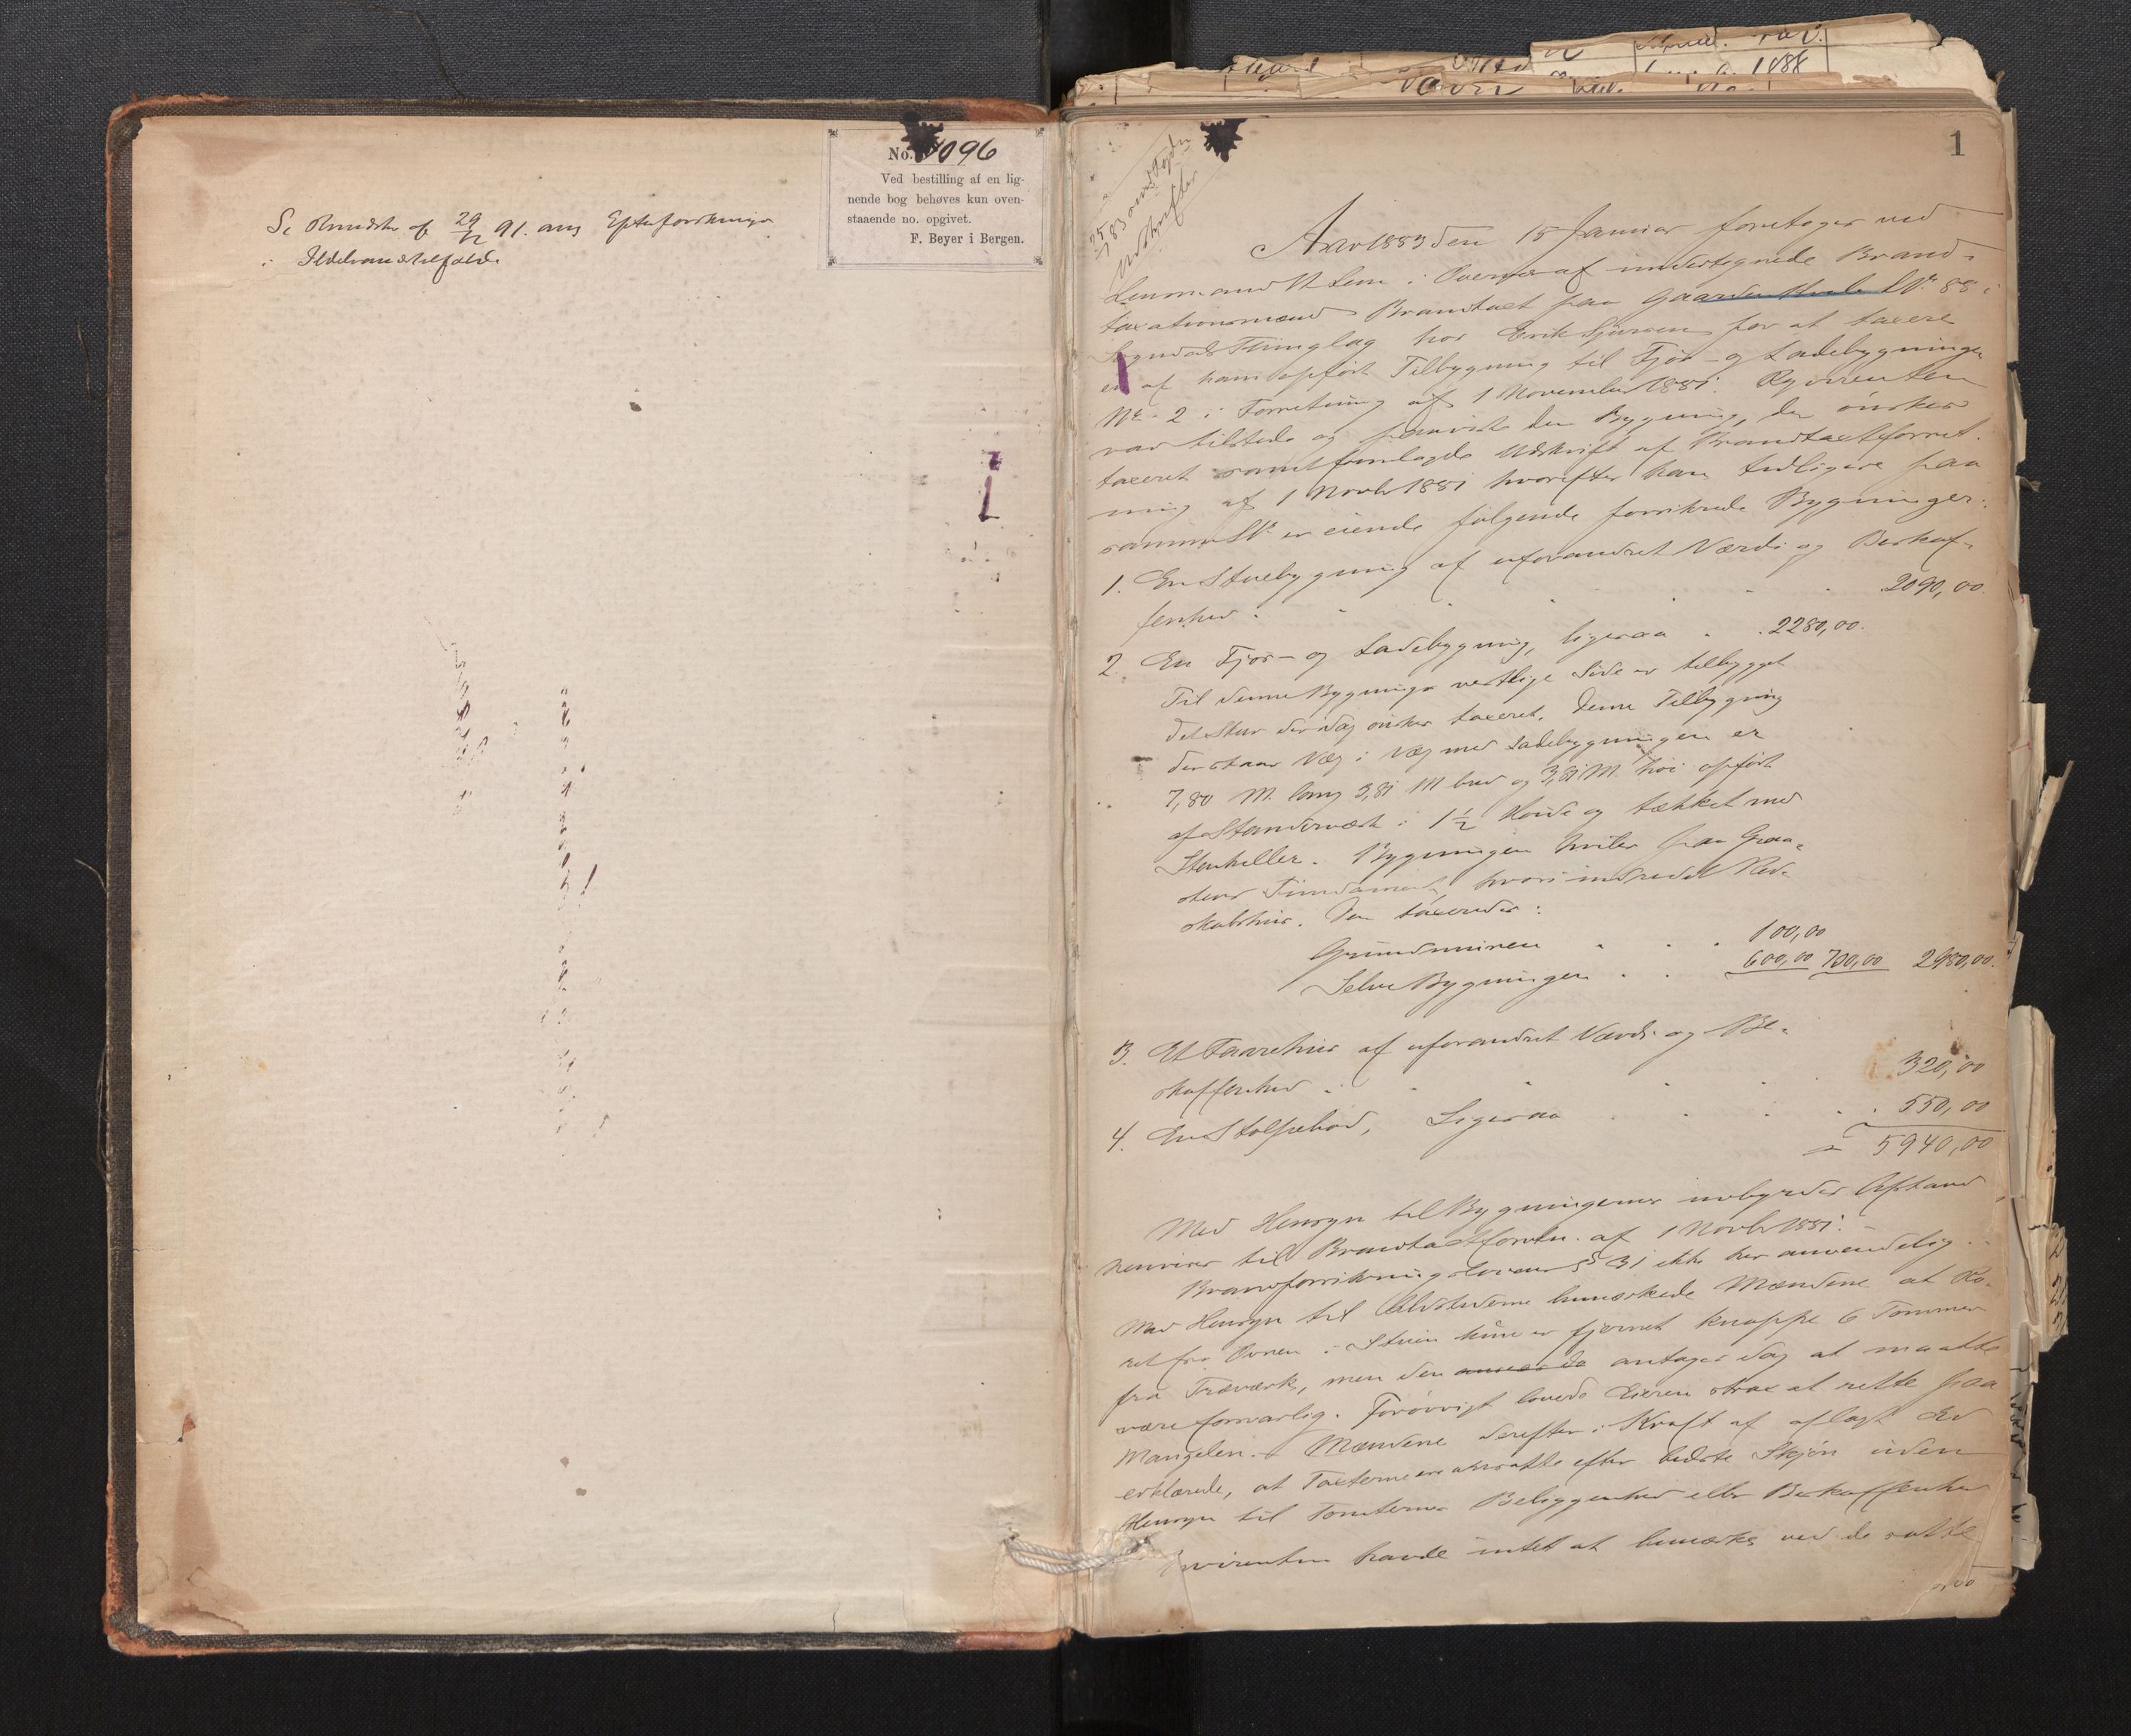 No. 4096
Ved bestilling af en lig-
nende bog behøves kun oven-
staaende no. opgivet.
F. Beyer i Bergen.
Se Rundskr af 29/12 91. ang Efterforskninger
i Ildebrandstilfælde
1
Aar 1883 den 15 Januar foretoges ved
Lensmand Lem i Overvær af undertegnede Brand-
taxationsmænd Brandtaxt paa Gaarden LNo 88 i
Sogndals Thinglag hos Erik Sjursen for at taxere
en af ham opført Tilbygning til Fjøs- og Ladebygningen
No 2 i Forretning af 1 November 1881. Rqvirenten
var tilstede og paaviste den Bygning, der ønskes
taxeret samt fremlagde Udskrift af Brandtaxtforret-
ning af 1 Novbr 1881 hvorefter han tidligere paa
samme LNo er eiende følgende forsikrede Bygninger:
1. En Stuebygning af uforandret Værdi og Beskaf-
fenhed . 2090,00
2. En Fjøs- og Ladebygning, ligesaa . 2280,00.
Til denne Bygnings vestlige Side er tilbygget
det Skur der idag ønskes taxeret. Denne Tilbygning
der staar Væg i Væg med Ladebygningen er
7,80 M. lang 3,81 M bred og 3,81 M. høi opført
af Stenderværk i 1 1/2 Høide og tækket med
Stenheller. Bygningen hviler paa Graa-
stens Fundament, hvori indredet Red-
skabshus. Den taxeredes:
Grundmuren . . . 100,00
Selve Bygningen . . 600,00 700,00 2980,00.
3. Et Faarehus af uforandret Værdi og Be-
skaffenhed . 320,00
4. En Stolpebod, Ligesaa . 550,00
5940,00
Med Hensyn til Bygningernes indbyrdes Afstand
henvises til Brandtaxtforretn. af 1 Novbr 1881. -
Brandforsikringslovens § 31 ikke her anvendelig. -
Med Hensyn til Ildstederne bemærkede Mændene at Rø-
ret fra Ovnen i Stuen kun er fjernet knappe 6 Tommer
fra Træværk, men den antages dog at maatte
være forsvarlig. Forøvrigt lovede Eieren strax at rette paa
Mangelen. - Mændene derefter i Kraft af aflagt Ed
erklærede, at Taxterne ere ansatte efter bedste Skjøn uden
Hensyn til Tomternes Beliggenhed eller Beskaffenhed
havde intet at bemærke ved de satte